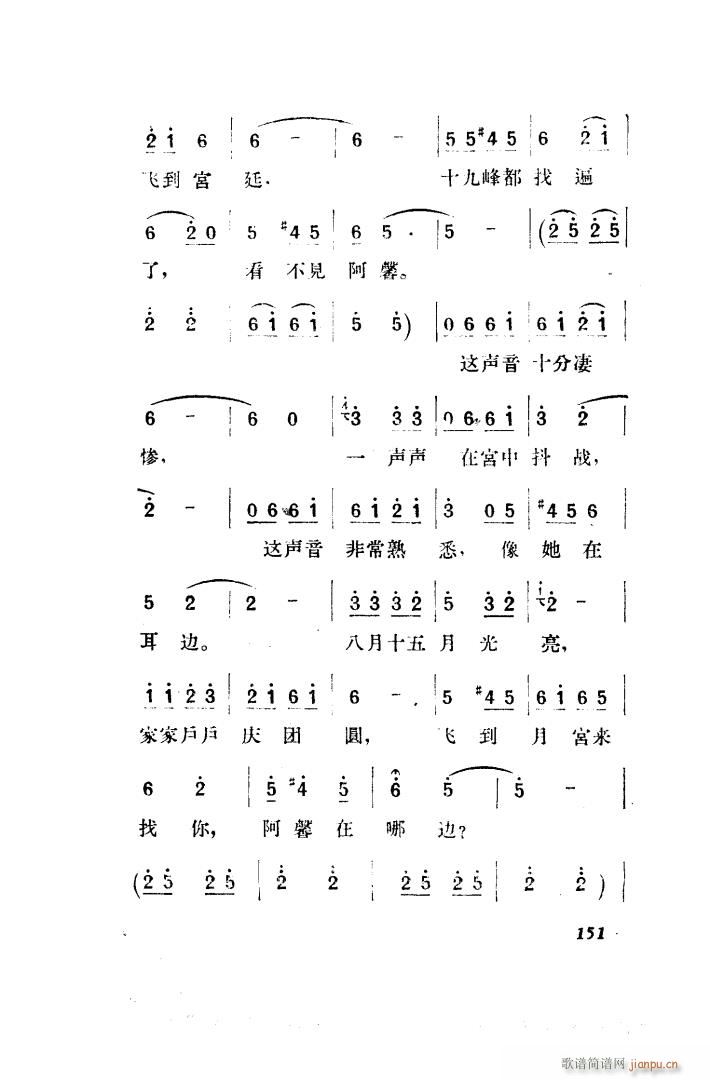 2 1 6 | 6 - | 6 - | 5 5 #4 5 | 6 2 1 |
飞到宮 廷, 十九峰都 找 遍
6 2 0 | 5 #4 5 | 6 5 · | 5 - | (2 5 2 5 |
了, 看 不見 阿 馨。
2 2 | 6 1 6 1 | 5 5) | 0 6 6 1 | 6 1 2 1 |
这声音 十分凄
6 - | 6 0 | 3 3 3 | 0 6 6 1 | 3 2 |
惨, 一 声声 在宮中 抖 战,
2 - | 0 6 6 1 | 6 1 2 1 | 3 0 5 | #4 5 6 |
这声音 非常熟 悉, 像 她 在
5 2 | 2 - | 3 3 3 2 | 5 3 2 | 2 - |
耳 边。 八月十五 月 光 亮,
1 1 2 3 | 2 1 6 1 | 6 - | 5 #4 5 | 6 1 6 5 |
家家戶戶 庆 团 圓, 飞 到 月 宮来
6 2 | 5 #4 5 | 6 5 | 5 - |
找 你, 阿 馨 在 哪 边?
(2 5 2 5 | 2 2 | 2 5 2 5 | 2 2) |
151
歌谱简谱网 jianpu.cn